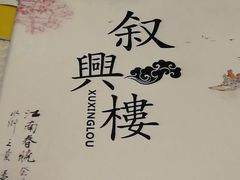 叙興樓
XUXINGLOU
江南春曉